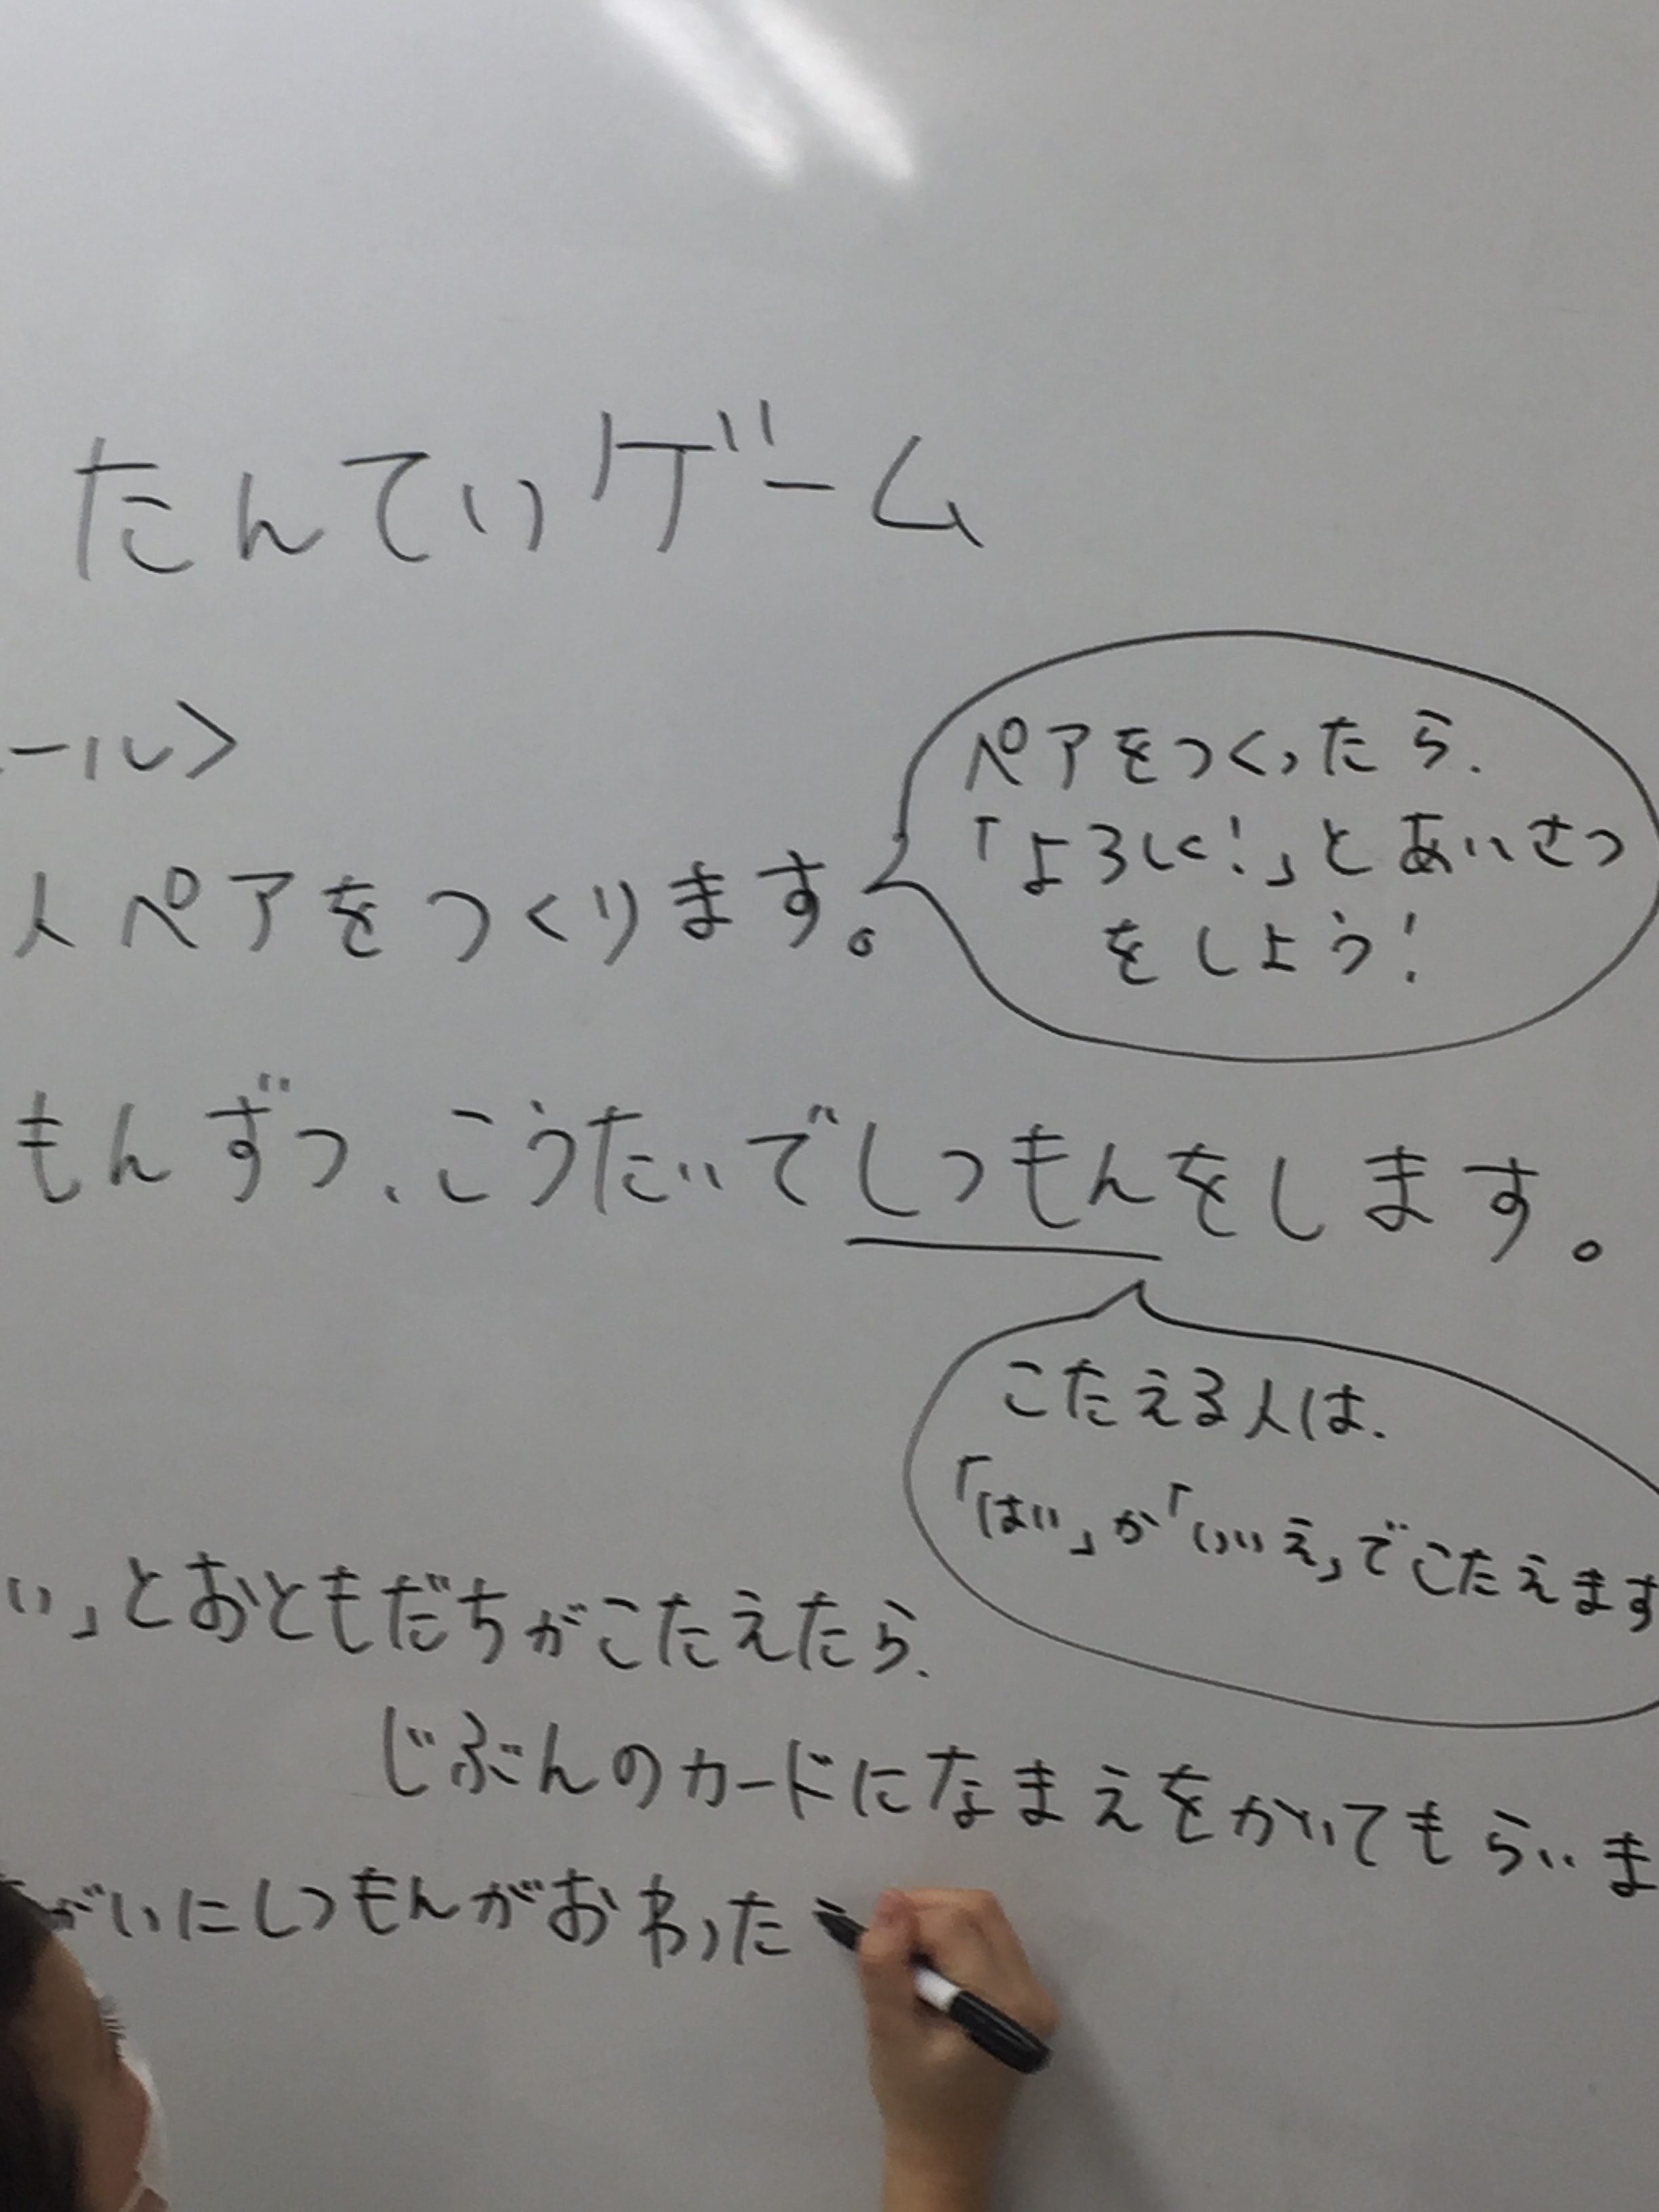 たんていゲーム
ール>
人ペアをつくります。
ペアをつくったら、
「よろしく!」とあいさつ
をしよう!
もんずつ、こうたいでしつもんをします。
こたえる人は、
「はい」か「いいえ」でこたえます
い」とおともだちがこたえたら、
じぶんのカードになまえをかいてもらいま
がいにしつもんがおわった